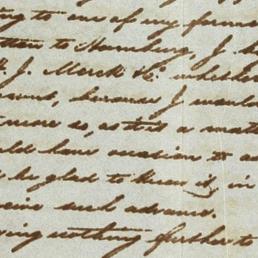 to one of my former
to Hamburg, J. h
J. Merck & Co. whether
because I
so, as it is a matt
uld have occasion to a
be glad to know it, in
such advance.
ving nothing further to